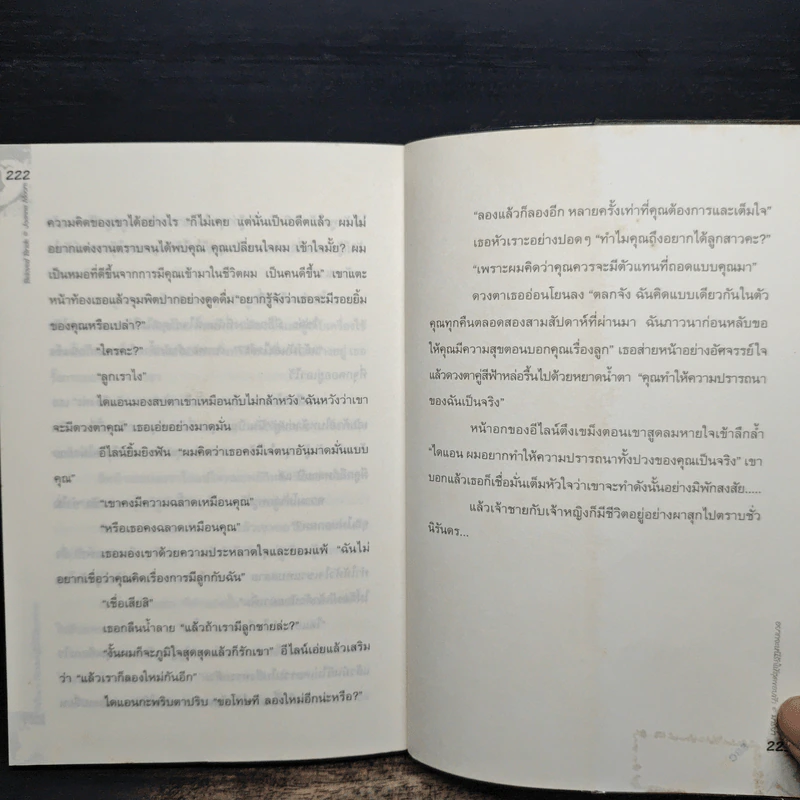 222
ความคิดของเขาได้อย่างไร "ก็ไม่เคย แต่นั่นเป็นอดีตแล้ว ผมไม่
อยากแต่งงานตราบจนได้พบคุณ คุณเปลี่ยนใจผม เข้าใจมั้ย? ผม
เป็นหมอที่ดีขึ้นจากการมีคุณเข้ามาในชีวิตผม เป็นคนดีขึ้น" เขาแตะ
หน้าท้องเธอแล้วจุมพิตปากอย่างดูดดื่ม "อยากรู้จังว่าเธอจะมีรอยยิ้ม
ของคุณหรือเปล่า?"
"ใครคะ?"
"ลูกเราไง"
ไดแอนมองสบตาเขาเหมือนกับไม่กล้าหวัง "ฉันหวังว่าเขา
จะมีดวงตาคุณ" เธอเอ่ยอย่างมาดมั่น
อีไลน์ยิ้มยิงฟัน "ผมคิดว่าเธอคงมีเจตนาอันมาดมั่นแบบ
คุณ"
"เขาคงมีความฉลาดเหมือนคุณ"
"หรือเธอคงฉลาดเหมือนคุณ"
เธอมองเขาด้วยความประหลาดใจและยอมแพ้ "ฉันไม่
อยากเชื่อว่าคุณคิดเรื่องการมีลูกกับฉัน"
"เชื่อเสียสิ"
เธอกลืนน้ำลาย "แล้วถ้าเรามีลูกชายล่ะ?"
"งั้นผมก็จะภูมิใจสุดสุดแล้วก็รักเขา" อีไลน์เอ่ยแล้วเสริม
ว่า "แล้วเราก็ลองใหม่กันอีก"
ไดแอนกะพริบตาปริบ "ขอโทษที ลองใหม่อีกน่ะหรือ?"
"ลองแล้วก็ลองอีก หลายครั้งเท่าที่คุณต้องการและเต็มใจ"
เธอหัวเราะอย่างปอดๆ "ทำไมคุณถึงอยากได้ลูกสาวคะ?"
"เพราะผมคิดว่าคุณควรจะมีตัวแทนที่ถอดแบบคุณมา"
ดวงตาเธออ่อนโยนลง "ตลกจัง ฉันคิดแบบเดียวกันในตัว
คุณทุกคืนตลอดสองสามสัปดาห์ที่ผ่านมา ฉันภาวนาก่อนหลับขอ
ให้คุณมีความสุขตอนบอกคุณเรื่องลูก" เธอส่ายหน้าอย่างอัศจรรย์ใจ
แล้วดวงตาคู่สีฟ้าหล่อรื้นไปด้วยหยาดน้ำตา "คุณทำให้ความปรารถนา
ของฉันเป็นจริง"
หน้าอกของอีไลน์ตึงเขม็งตอนเขาสูดลมหายใจเข้าลึกล้ำ
"ไดแอน ผมอยากทำให้ความปรารถนาทั้งปวงของคุณเป็นจริง" เขา
บอกแล้วเธอก็เชื่อมั่นเต็มหัวใจว่าเขาจะทำดังนั้นอย่างมิพักสงสัย.....
แล้วเจ้าชายกับเจ้าหญิงก็มีชีวิตอยู่อย่างผาสุกไปตราบชั่ว
นิรันดร...